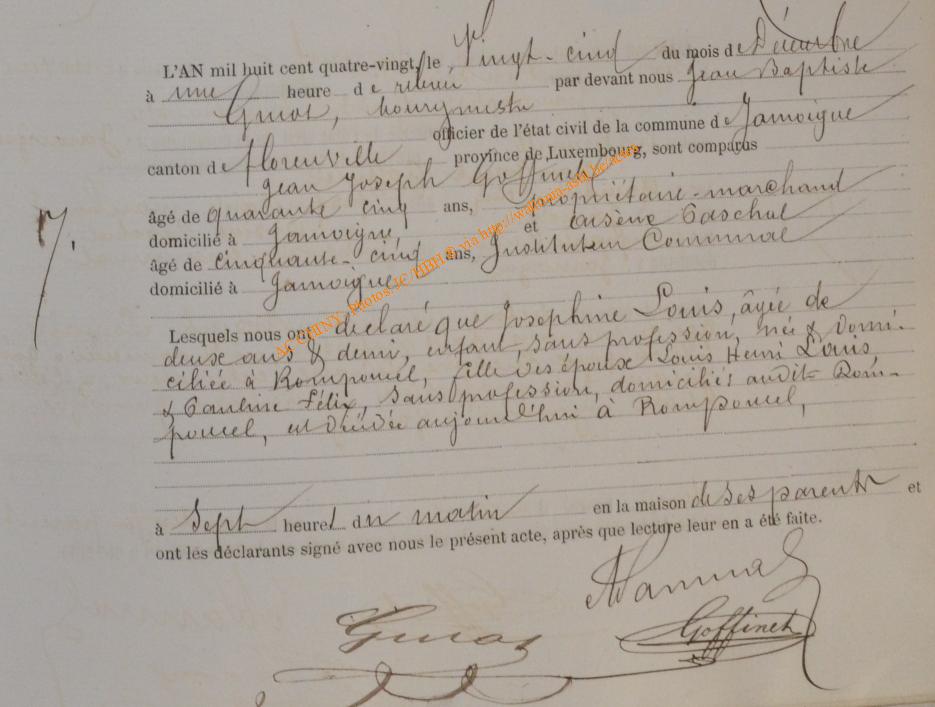 L'AN mil huit cent quatre-vingt, le Vingt-cinq du mois de Décembre
à une heure de relevée par devant nous Jean Baptiste
Guiot, bourgmestre
officier de l'état civil de la commune de Jamoigne
canton de florenville province de Luxembourg, sont comparus
Jean Joseph Goffinet
âgé de quarante cinq ans, propriétaire-marchand
domicilié à Jamoigne, et Arsène Paschal
âgé de cinquante-cinq ans, Instituteur Communal
domicilié à Jamoigne
7.
Lesquels nous ont déclaré que Josephine Louis, âgée de
deux ans & demi, enfant, sans profession, née & domi-
ciliée à Romponcel, fille des époux Louis Henri Louis,
& Pauline Félix, sans profession, domiciliés audit Rom-
poncel, est décédée aujourd'hui à Romponcel,
à Sept heures du matin en la maison de ses parents et
ont les déclarants signé avec nous le présent acte, après que lecture leur en a été faite.
Guiot
Goffinet